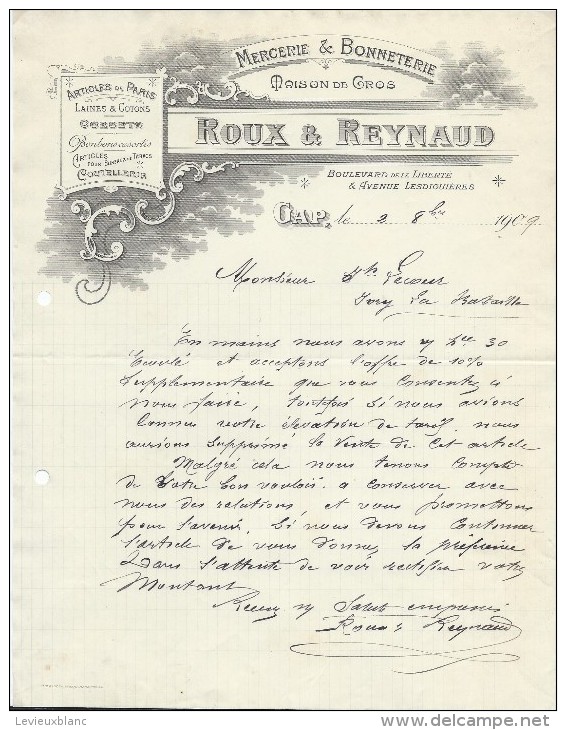 MERCERIE & BONNETERIE
MAISON DE GROS
ARTICLES DE PARIS
LAINES & COTONS
CORSETS
Bonbons assortis
ARTICLES
POUR
TABACS
COUTELLERIE
ROUX & REYNAUD
BOULEVARD DE LA LIBERTÉ
& AVENUE LESDIGUIÈRES
GAP, le 2 8bre 1909
Monsieur Lecœur
Ivry la Bataille
En mains nous avons 30
Ecoulé et acceptons l'offre de 10%
supplémentaire que vous consentez à
nous faire, toutefois si nous avions
connu votre élévation de tarif, nous
aurions supprimé la vente de cet article
Malgré cela nous tenons compte
de votre bon vouloir à conserver avec
nous des relations, et vous promettons
pour l'avenir, si nous devons continuer
l'article de vous donner la préférence
Dans l'attente de voir rectifier votre
Montant
Recevez Salut empressé
Roux & Reynaud
Levieuxblanc
www.delcampe.net